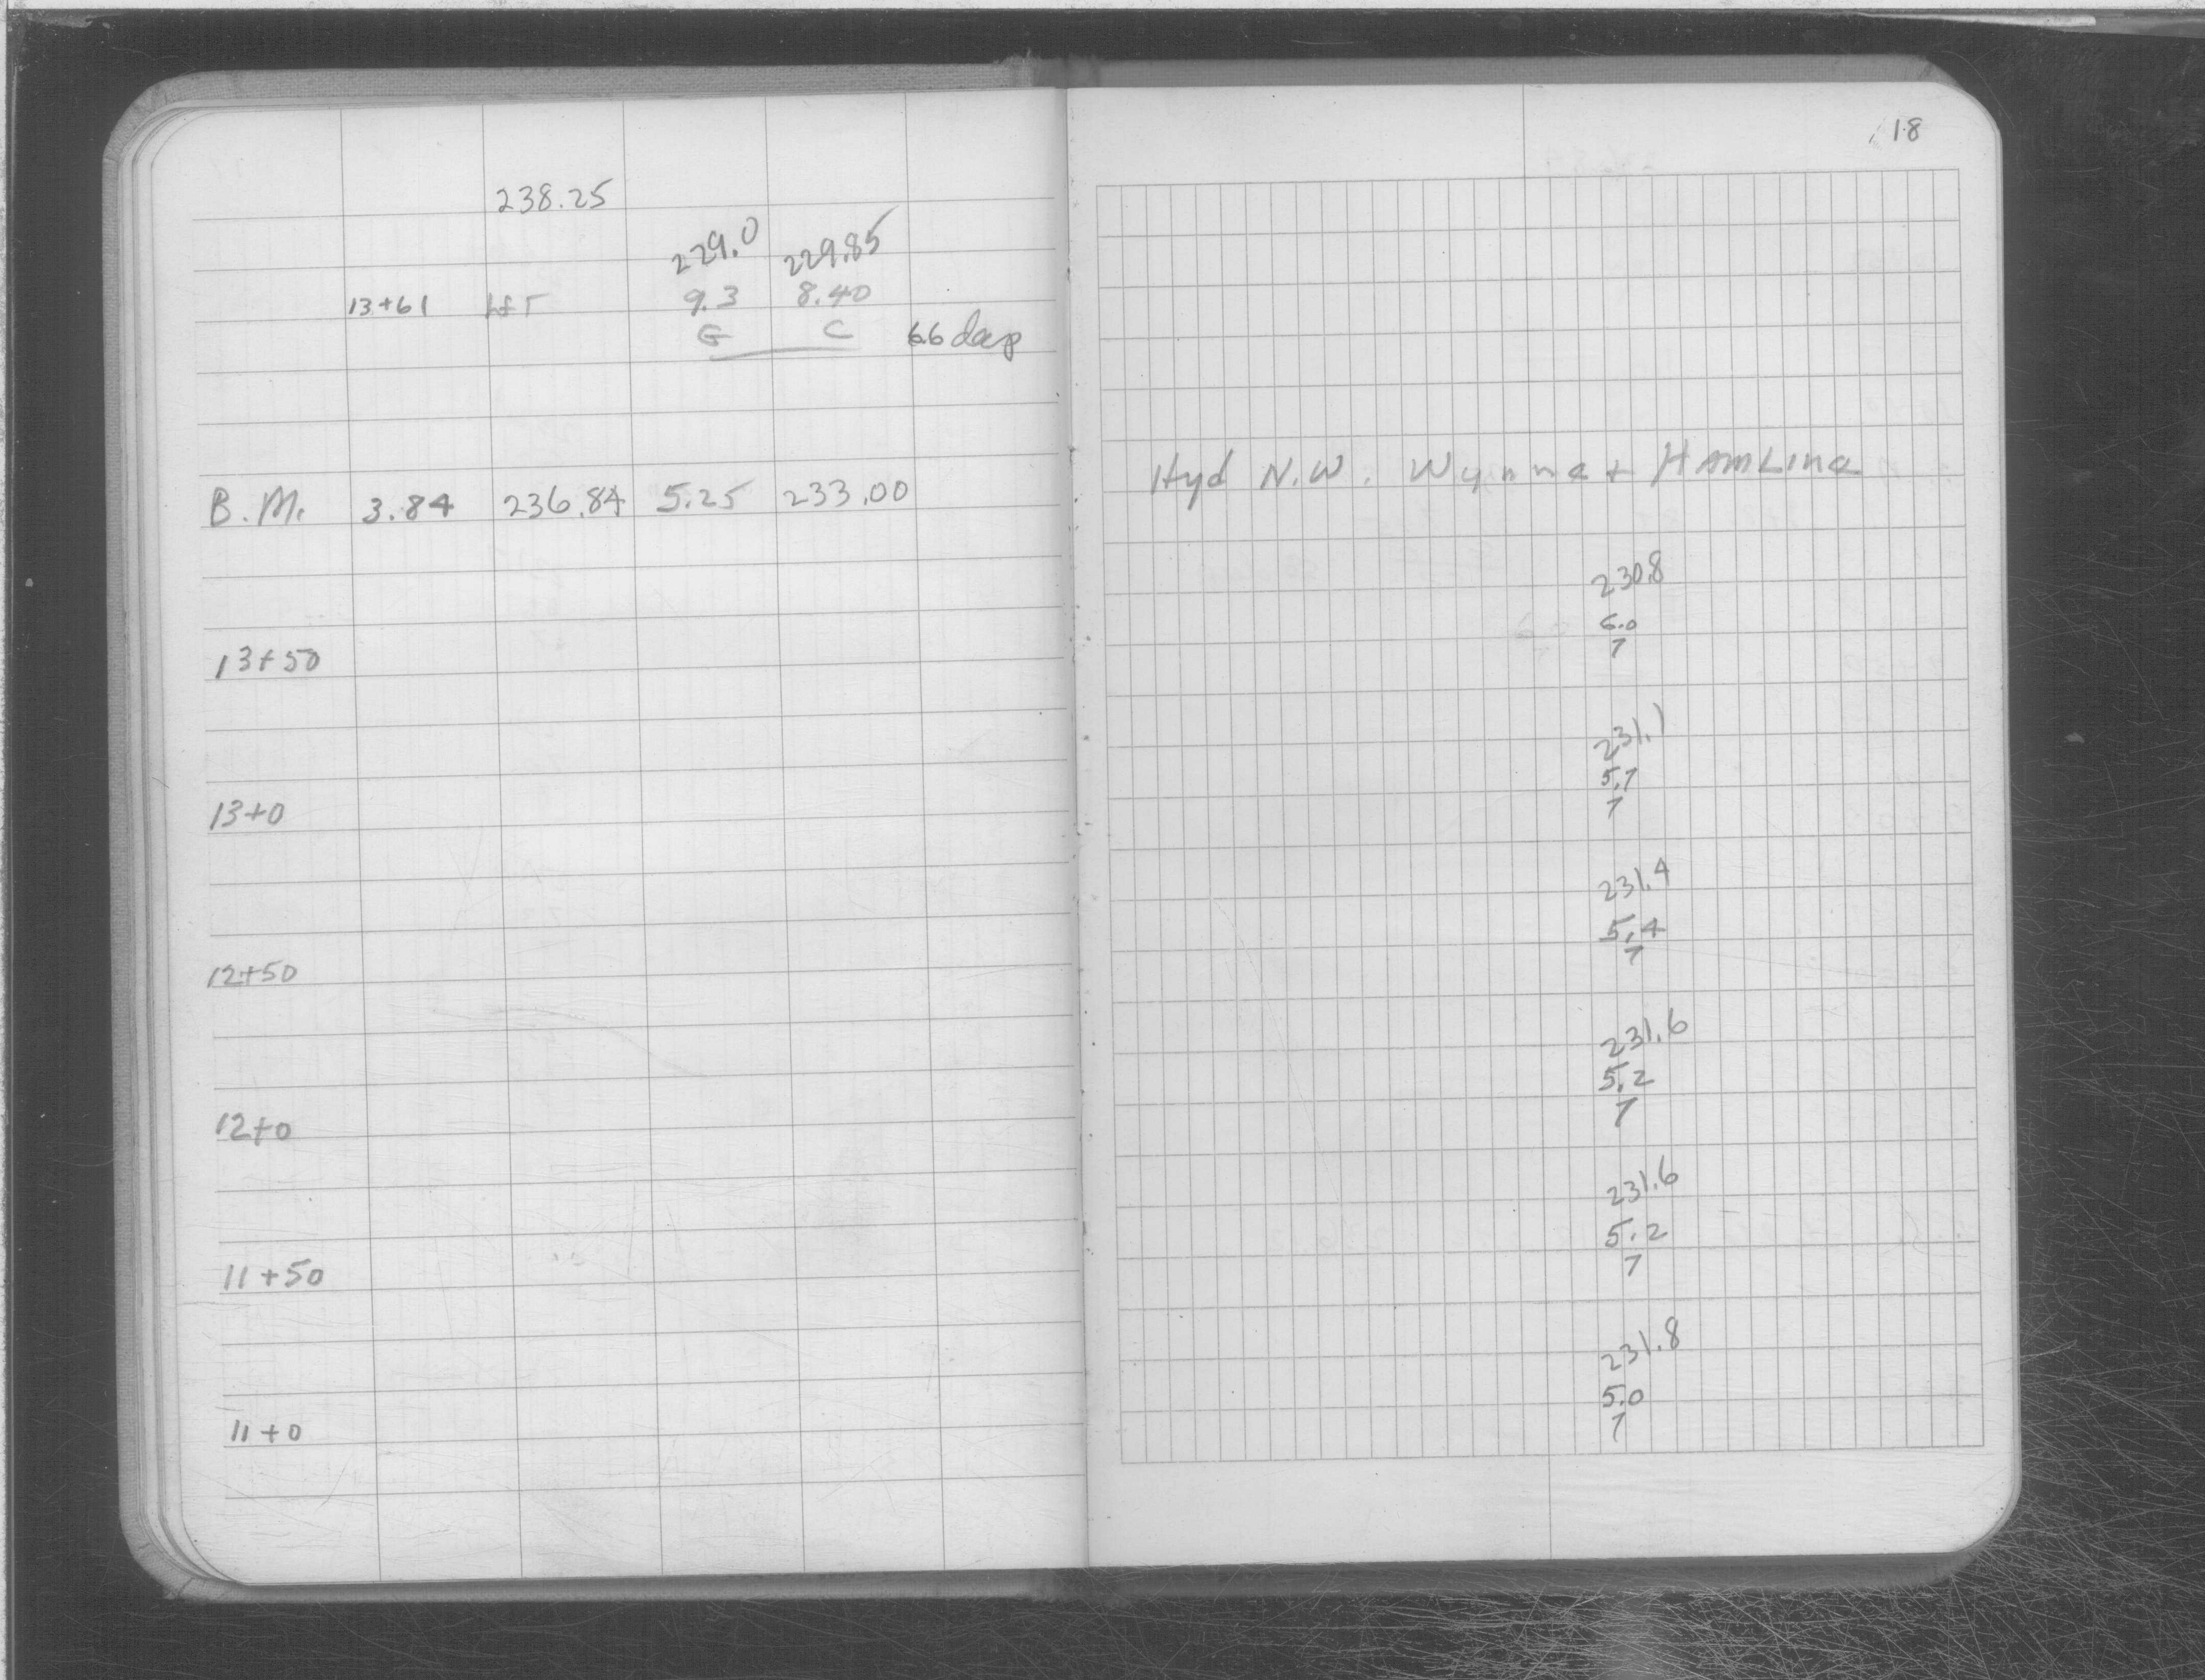 18
238.25
229.0 229.85
13+61 LfT 9.3 8.40
G C 6.6 deep
B.M. 3.84 236.84 5.25 233.00 Hyd N.W. Wynne + HAMLine
230.8
6.0
13+50 7
231.1
5.7
13+0 7
231.4
5.4
12+50 7
231.6
5.2
12+0 7
231.6
5.2
11+50 7
231.8
5.0
11+0 7